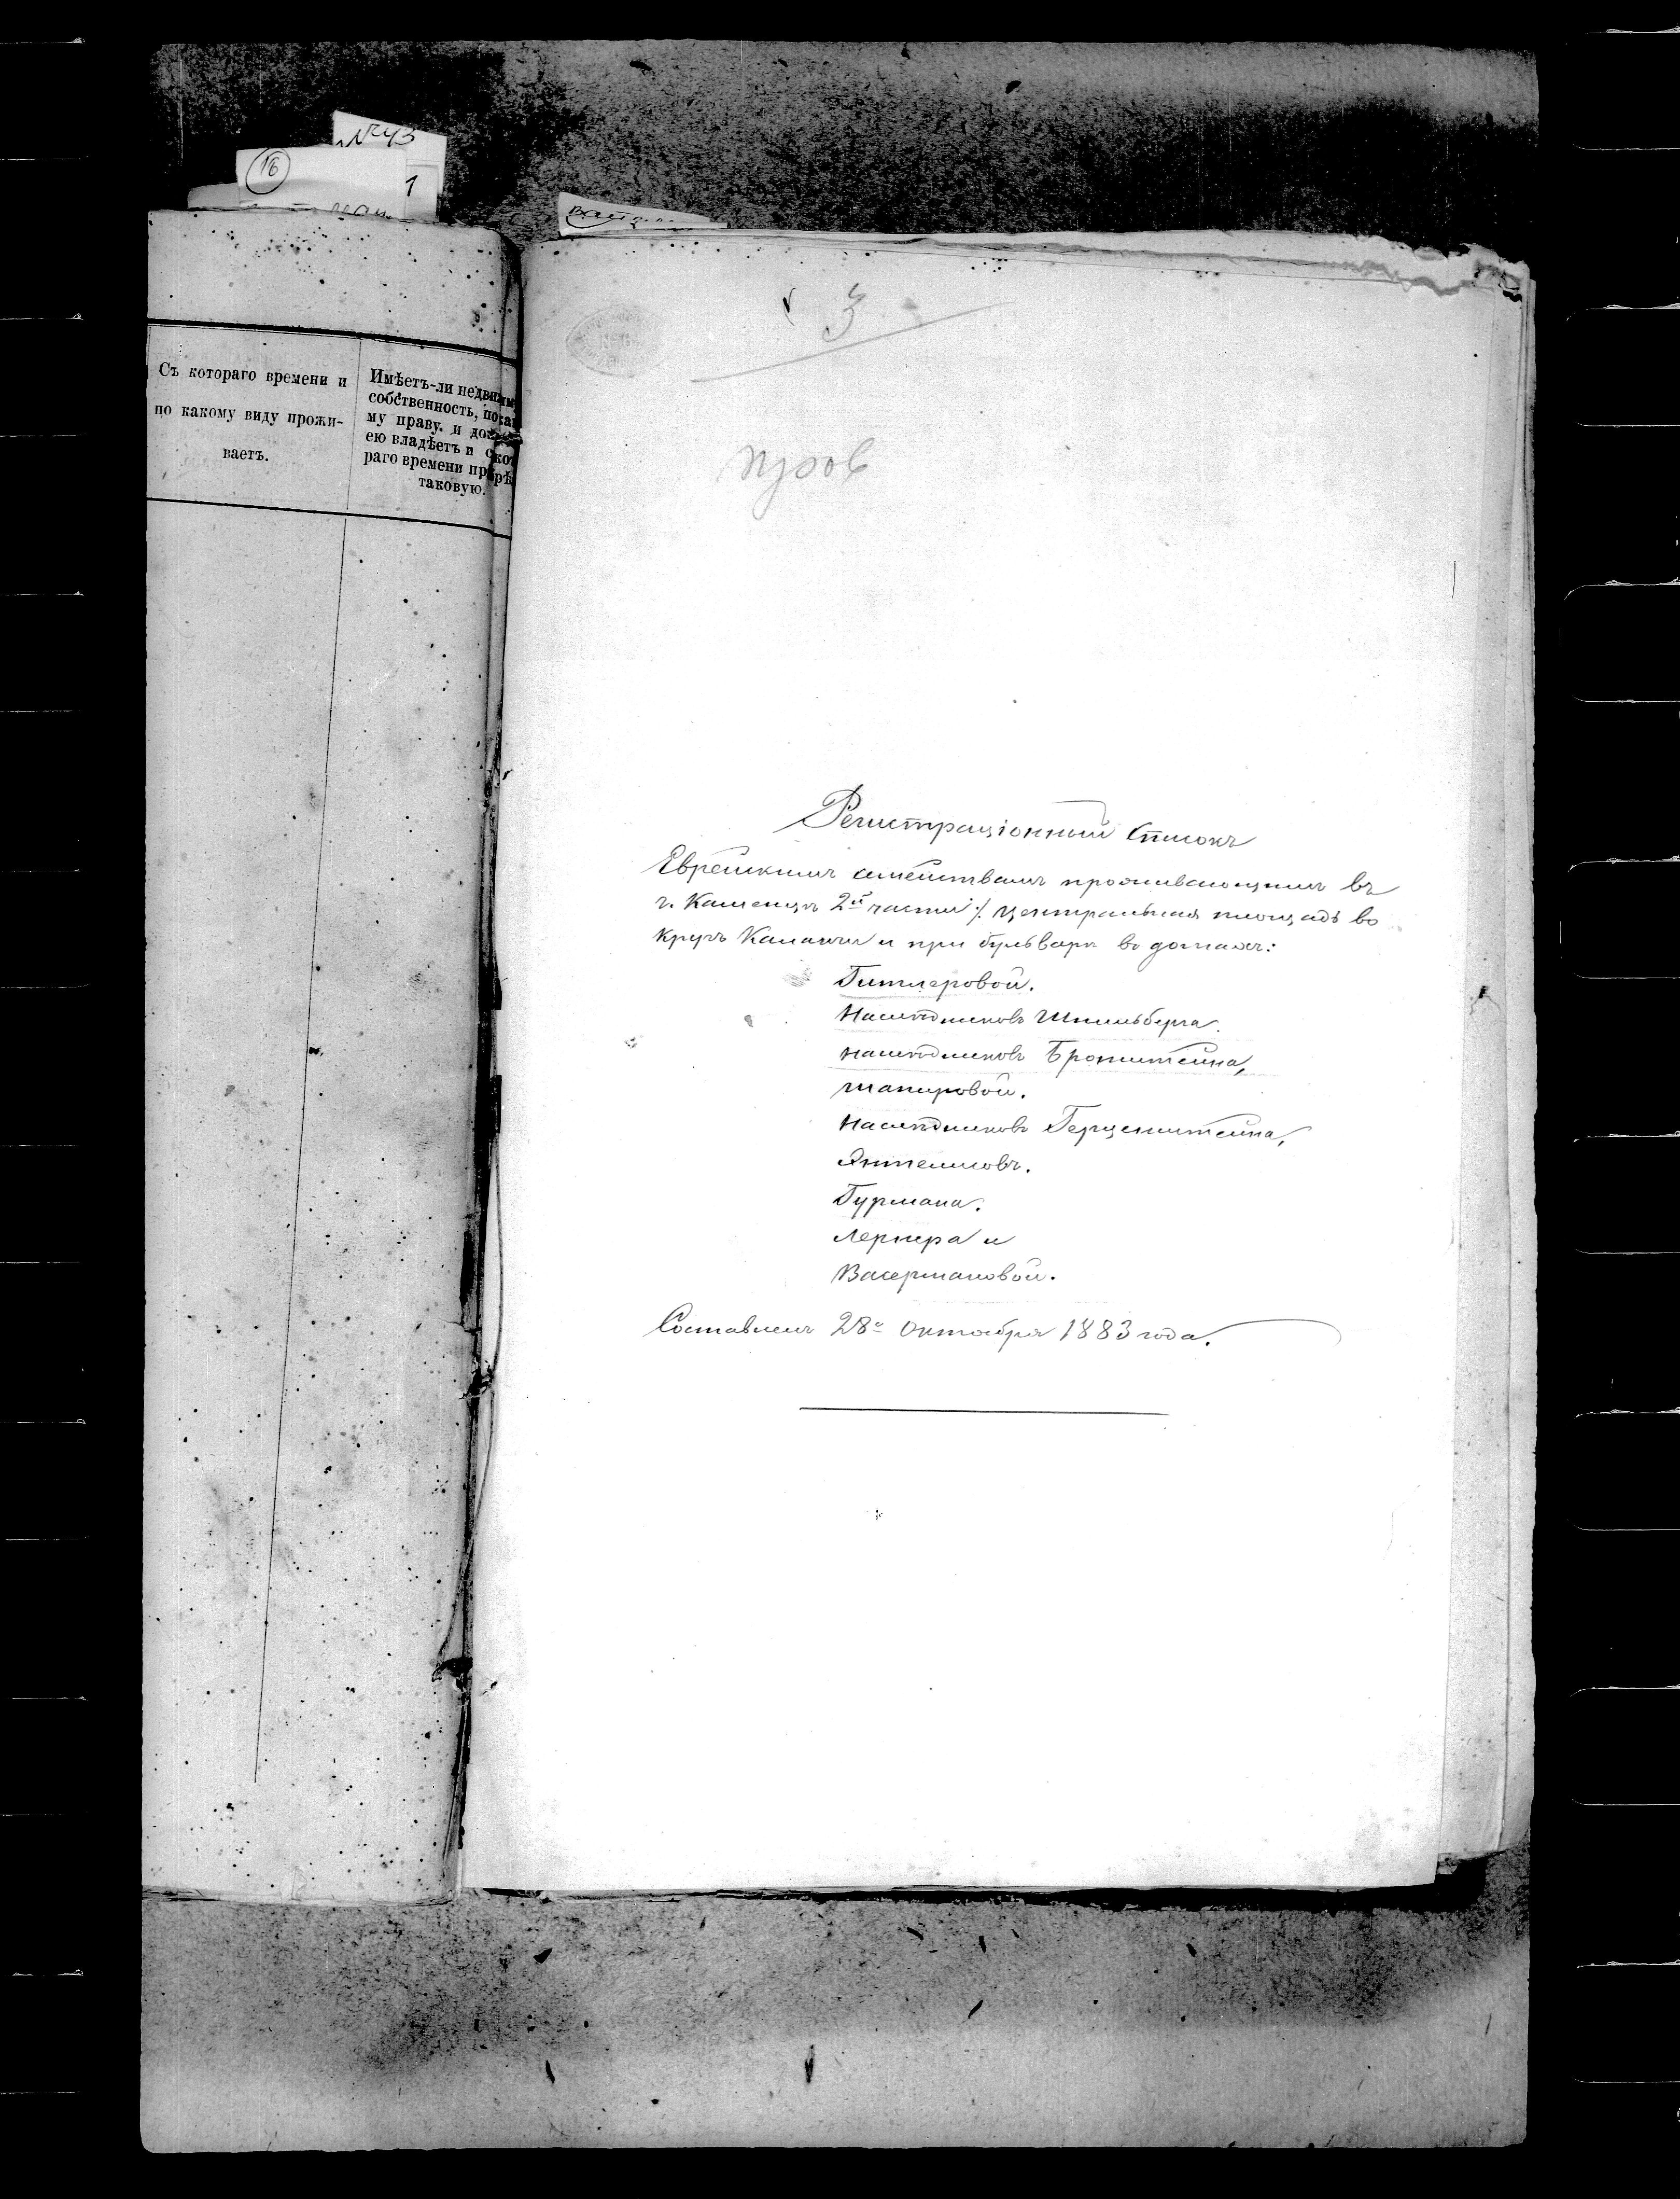 №43
16
1
Съ котораго времени и
по какому виду прожи-
ваетъ.
Имѣетъ-ли недвижим
собственность, по ка
му праву и до
ею владѣетъ и с кот
раго времени прі брѣ
таковую.
3
пров
Регистраціонный Списокъ
Еврейскимъ семействамъ проживающимъ въ
г. Каменцѣ 2й части ./. Центральная площадь во
кругъ Каланчи и при бульварѣ въ домахъ:
Гитлеровой.
Наслѣдниковъ Шпильберга.
наслѣдниковъ Бронштейна,
Шапировой.
Наслѣдниковъ Герценштейна,
Гурмана.
Лернера и
Васермановой.
Составленъ 28го Октября 1883 года.